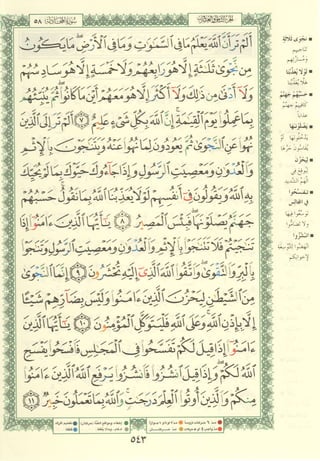 سورة المجادلة ٥٨
أَلَمْ تَرَ أَنَّ ٱللَّهَ يَعْلَمُ مَا فِى ٱلسَّمَٰوَٰتِ وَمَا فِى ٱلْأَرْضِ مَا يَكُونُ
مِن نَّجْوَىٰ ثَلَٰثَةٍ إِلَّا هُوَ رَابِعُهُمْ وَلَا خَمْسَةٍ إِلَّا هُوَ سَادِسُهُمْ
وَلَآ أَدْنَىٰ مِن ذَٰلِكَ وَلَآ أَكْثَرَ إِلَّا هُوَ مَعَهُمْ أَيْنَ مَا كَانُوا۟ ثُمَّ يُنَبِّئُهُم
بِمَا عَمِلُوا۟ يَوْمَ ٱلْقِيَٰمَةِ إِنَّ ٱللَّهَ بِكُلِّ شَىْءٍ عَلِيمٌ ٧ أَلَمْ تَرَ إِلَى ٱلَّذِينَ
نُهُوا۟ عَنِ ٱلنَّجْوَىٰ ثُمَّ يَعُودُونَ لِمَا نُهُوا۟ عَنْهُ وَيَتَنَٰجَوْنَ بِٱلْإِثْمِ
وَٱلْعُدْوَٰنِ وَمَعْصِيَتِ ٱلرَّسُولِ وَإِذَا جَآءُوكَ حَيَّوْكَ بِمَا لَمْ يُحَيِّكَ
بِهِ ٱللَّهُ وَيَقُولُونَ فِىٓ أَنفُسِهِمْ لَوْلَا يُعَذِّبُنَا ٱللَّهُ بِمَا نَقُولُ حَسْبُهُمْ
جَهَنَّمُ يَصْلَوْنَهَا فَبِئْسَ ٱلْمَصِيرُ ٨ يَٰٓأَيُّهَا ٱلَّذِينَ ءَامَنُوٓا۟ إِذَا
تَنَٰجَيْتُمْ فَلَا تَتَنَٰجَوْا۟ بِٱلْإِثْمِ وَٱلْعُدْوَٰنِ وَمَعْصِيَتِ ٱلرَّسُولِ وَتَنَٰجَوْا۟
بِٱلْبِرِّ وَٱلتَّقْوَىٰ وَٱتَّقُوا۟ ٱللَّهَ ٱلَّذِىٓ إِلَيْهِ تُحْشَرُونَ ٩ إِنَّمَا ٱلنَّجْوَىٰ
مِنَ ٱلشَّيْطَٰنِ لِيَحْزُنَ ٱلَّذِينَ ءَامَنُوا۟ وَلَيْسَ بِضَآرِّهِمْ شَيْـًٔا
إِلَّا بِإِذْنِ ٱللَّهِ وَعَلَى ٱللَّهِ فَلْيَتَوَكَّلِ ٱلْمُؤْمِنُونَ ١٠ يَٰٓأَيُّهَا ٱلَّذِينَ
ءَامَنُوٓا۟ إِذَا قِيلَ لَكُمْ تَفَسَّحُوا۟ فِى ٱلْمَجَٰلِسِ فَٱفْسَحُوا۟ يَفْسَحِ
ٱللَّهُ لَكُمْ وَإِذَا قِيلَ ٱنشُزُوا۟ فَٱنشُزُوا۟ يَرْفَعِ ٱللَّهُ ٱلَّذِينَ ءَامَنُوا۟
مِنكُمْ وَٱلَّذِينَ أُوتُوا۟ ٱلْعِلْمَ دَرَجَٰتٍ وَٱللَّهُ بِمَا تَعْمَلُونَ خَبِيرٌ ١١
نجوى ثلاثة
تناجيهم
لولا يعذبنا
هلا يعذبنا
حسبهم جهنم
كافيهم جهنم
يصلونها
ليحزن
تفسحوا
في المجالس
توسعوا فيها
انشزوا
لإخوانكم
٥٤٣